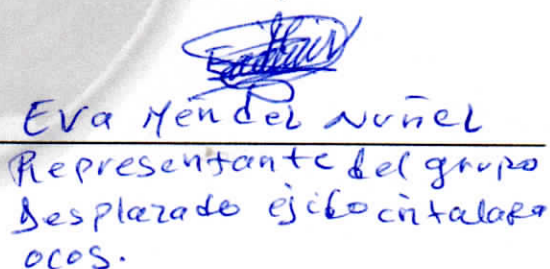 Eva Méndez Nuñez
Representante del grupo
Desplazado ejido cintalapa
ocos.